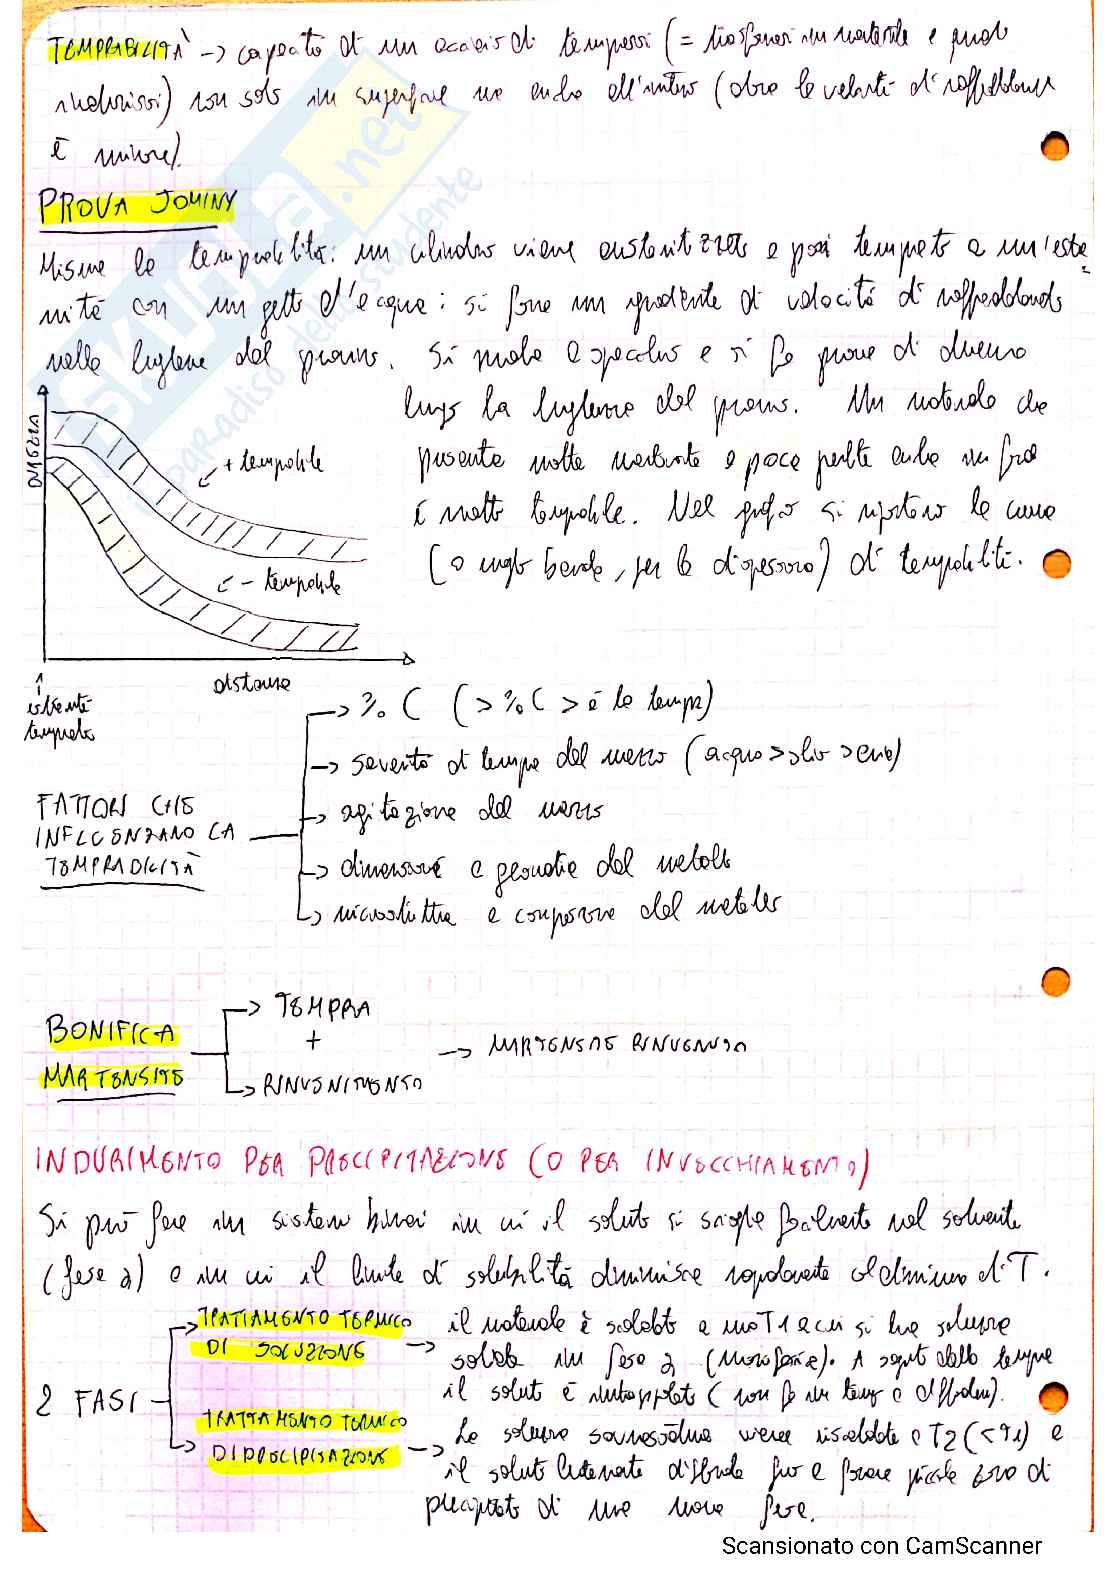 TEMPRABILITÀ -> capacità di un acciaio di temprarsi (= trasformarsi in martensite e quindi
indurirsi) non solo in superficie ma anche all'interno (dove la velocità di raffreddamento
è minore).
PROVA JOMINY
Misura la temprabilità: un cilindro viene austenitizzato e poi temprato a un'estre
mità con un getto d'acqua: si forma un gradiente di velocità di raffreddamento
nella lunghezza del provino. Si molano a specchio e si fa prove di durezza
lungo la lunghezza del provino. Un materiale che
presenta molta martensite e poca perlite anche in fondo
è molto temprabile. Nel grafico si riportano le curve
(o meglio bande, per la dispersione) di temprabilità.
DUREZZA
+ temprabile
- temprabile
distanza
estremità
temprata
FATTORI CHE
INFLUENZANO LA
TEMPRABILITÀ
-> % C (> % C > è la tempra)
-> severità di tempra del mezzo (acqua > olio > aria)
-> agitazione del mezzo
-> dimensioni e geometria del metallo
-> microstruttura e composizione del metallo
BONIFICA
MARTENSITE
-> TEMPRA
+
-> RINVENIMENTO
-> MARTENSITE RINVENUTA
INDURIMENTO PER PRECIPITAZIONE (O PER INVECCHIAMENTO)
Si può fare in sistemi binari in cui il soluto si scioglie facilmente nel solvente
(fase α) e in cui il limite di solubilità diminuisce rapidamente al diminuire di T.
2 FASI
-> TRATTAMENTO TERMICO
DI SOLUZIONE
-> il materiale è scaldato a una T1 a cui si ha soluzione
solida in fase α (monofasica). A seguito della tempra
il soluto è intrappolato (non fa in tempo a diffondere).
-> TRATTAMENTO TERMICO
DI PRECIPITAZIONE
-> La soluzione sovrassatura viene riscaldata a T2 (<T1) e
il soluto lentamente diffonde fino a formare piccole zone di
precipitato di una nuova fase.
Scansionato con CamScanner
SKUOLA.net
il paradiso dello studente